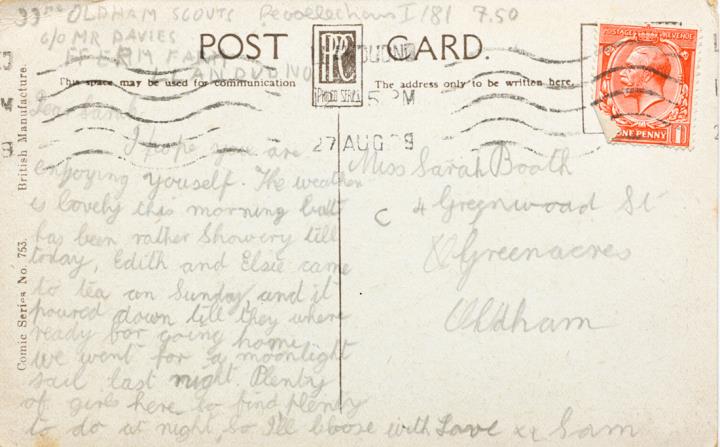 33rd OLDHAM SCOUTS Recollections I/181 7.50
c/o MR DAVIES
FFERM FARM
LLANDUDNO
POST CARD.
This space may be used for communication
The address only to be written here.
PHOTO SERIES
5 PM
27 AUG 29
POSTAGE REVENUE
ONE PENNY 1
British Manufacture.
Comic Series No. 753.
Dear Sarah
I hope you are
enjoying youself. The weather
is lovely this morning but
has been rather Showery till
today, Edith and Elsie came
to tea on Sunday, and it
poured down till they where
ready for going home.
we went for a moonlight
sail last night Plenty
of girls here to find plenty
to do at night, So I'll close with Love xx Sam
Miss Sarah Booth
4 Greenwood St
Greenacres
Oldham